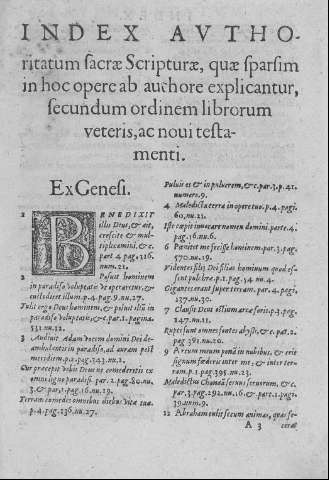 INDEX AVTHO-
ritatum sacræ Scripturæ, quæ sparsim
in hoc opere ab authore explicantur,
secundum ordinem librorum
veteris, ac noui testa-
menti.
Ex Genesi.
1 BENEDIXIT
illis Deus, & ait,
crescite & mul-
tiplicamini. &c.
part 4. pag. 316.
num. 21.
2 Posuit hominem
in paradiso voluptatis vt operaretur, &
custodiret illum. p. 4. pag. 9. nu. 27.
Tulit ergo Deus hominem, & posuit illū in
paradiso voluptatis, &c. par. 1. pagina.
531. nu. 12.
3 Audiuit Adam vocem domini Dei de-
ambulantis in paradiso, ad auram post
meridiem. p. 2. pag. 343. nu. 2.
Cur præcepit vobis Deus ne comederetis ex
omni ligno paradisi. par. 2. pag. 80. nu.
3. & par. 1. pag. 16. nu. 19.
Terram comedes omnibus diebus vitæ tuæ.
p. 4. pag. 236. nu. 27.
Puluis es & in puluerem, &c. par. 3. p. 41.
numero. 9.
4 Maledicta terra in opere tuo. p. 4. pagi.
60. nu. 21.
Iste cœpit inuocare nomen domini. parte 4.
pag. 16. nu. 6.
6 Pœnitet me fecisse hominem. par. 3. pag.
570. nu. 19.
Videntes filij Dei filias hominum quod es-
sent pulchræ. p. 1. pag. 34. nu. 4.
Gigantes erant super terram. par. 4. pagi.
137. nu. 30.
7 Clausit Deus ostium arcæ foris. p. 3. pag.
247. nu. 11.
Rupti sunt omnes fontes abyssi, &c. par. 2.
pag 381. nu. 20.
9 Arcum meum ponā in nubibus, & erit
signum fœderis inter me, & inter ter-
ram. p. 1. pag. 395. nu. 23.
Maledictus Chanaā seruus seruorum, &c.
par. 3. pag. 292. nu. 16. & part. 1. pagi.
39. num. 9.
12 Abraham tulit secum animas, quas fe-
A 3 cerat